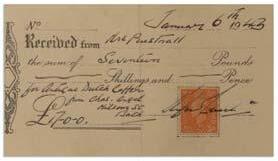 January 6th 1943
No
Received from Mrs
the sum of Seventeen Pounds
Shillings and Pence
for Antique Dutch Coffer
from Chas. Angell
Milsom St
Bath
£17.0.0.